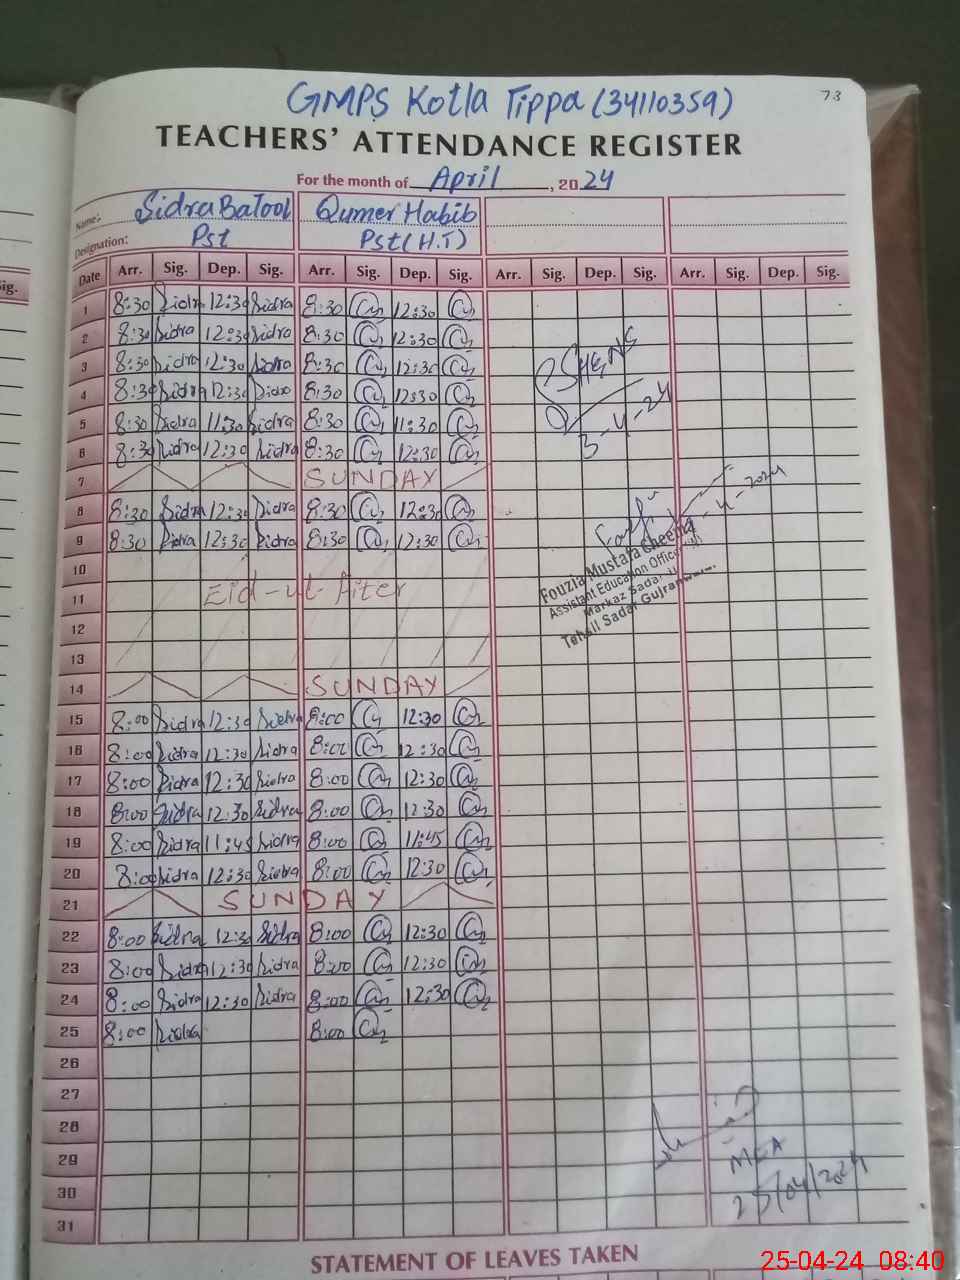 73
GMPS Kotla Tippa (34110359)
TEACHERS' ATTENDANCE REGISTER
For the month of April, 2024
Name: Sidra Batool Qumer Habib
Designation: Pst Pst (H.T)
Date Arr. Sig. Dep. Sig. Arr. Sig. Dep. Sig. Arr. Sig. Dep. Sig. Arr. Sig. Dep. Sig.
ig.
1 8:30 Sidra 12:30 Sidra 8:30 12:30
2 8:30 Sidra 12:30 Sidra 8:30 12:30
3 8:30 Sidra 12:30 Sidra 8:30 12:30
4 8:30 Sidra 12:30 Sidra 8:30 12:30
5 8:30 Sidra 11:30 Sidra 8:30 11:30
6 8:30 Sidra 12:30 Sidra 8:30 12:30
3-4-24
7 SUNDAY
8 8:30 Sidra 12:30 Sidra 8:30 12:30
9 8:30 Sidra 12:30 Sidra 8:30 12:30
10
11 Eid-ut-fiter
12
13
Fouzia Mustafa Cheema
Assistant Education Officer
Markaz Sadar
Tehsil Sadar
14 SUNDAY
15 8:00 Sidra 12:30 Sidra 8:00 12:30
16 8:00 Sidra 12:30 Sidra 8:00 12:30
17 8:00 Sidra 12:30 Sidra 8:00 12:30
18 8:00 Sidra 12:30 Sidra 8:00 12:30
19 8:00 Sidra 11:45 Sidra 8:00 11:45
20 8:00 Sidra 12:30 Sidra 8:00 12:30
21 SUNDAY
22 8:00 Sidra 12:30 Sidra 8:00 12:30
23 8:00 Sidra 12:30 Sidra 8:00 12:30
24 8:00 Sidra 12:30 Sidra 8:00 12:30
25 8:00 Sidra 8:00
26
27
28
29
30
31
MEA
25/04/2024
STATEMENT OF LEAVES TAKEN
25-04-24 08:40